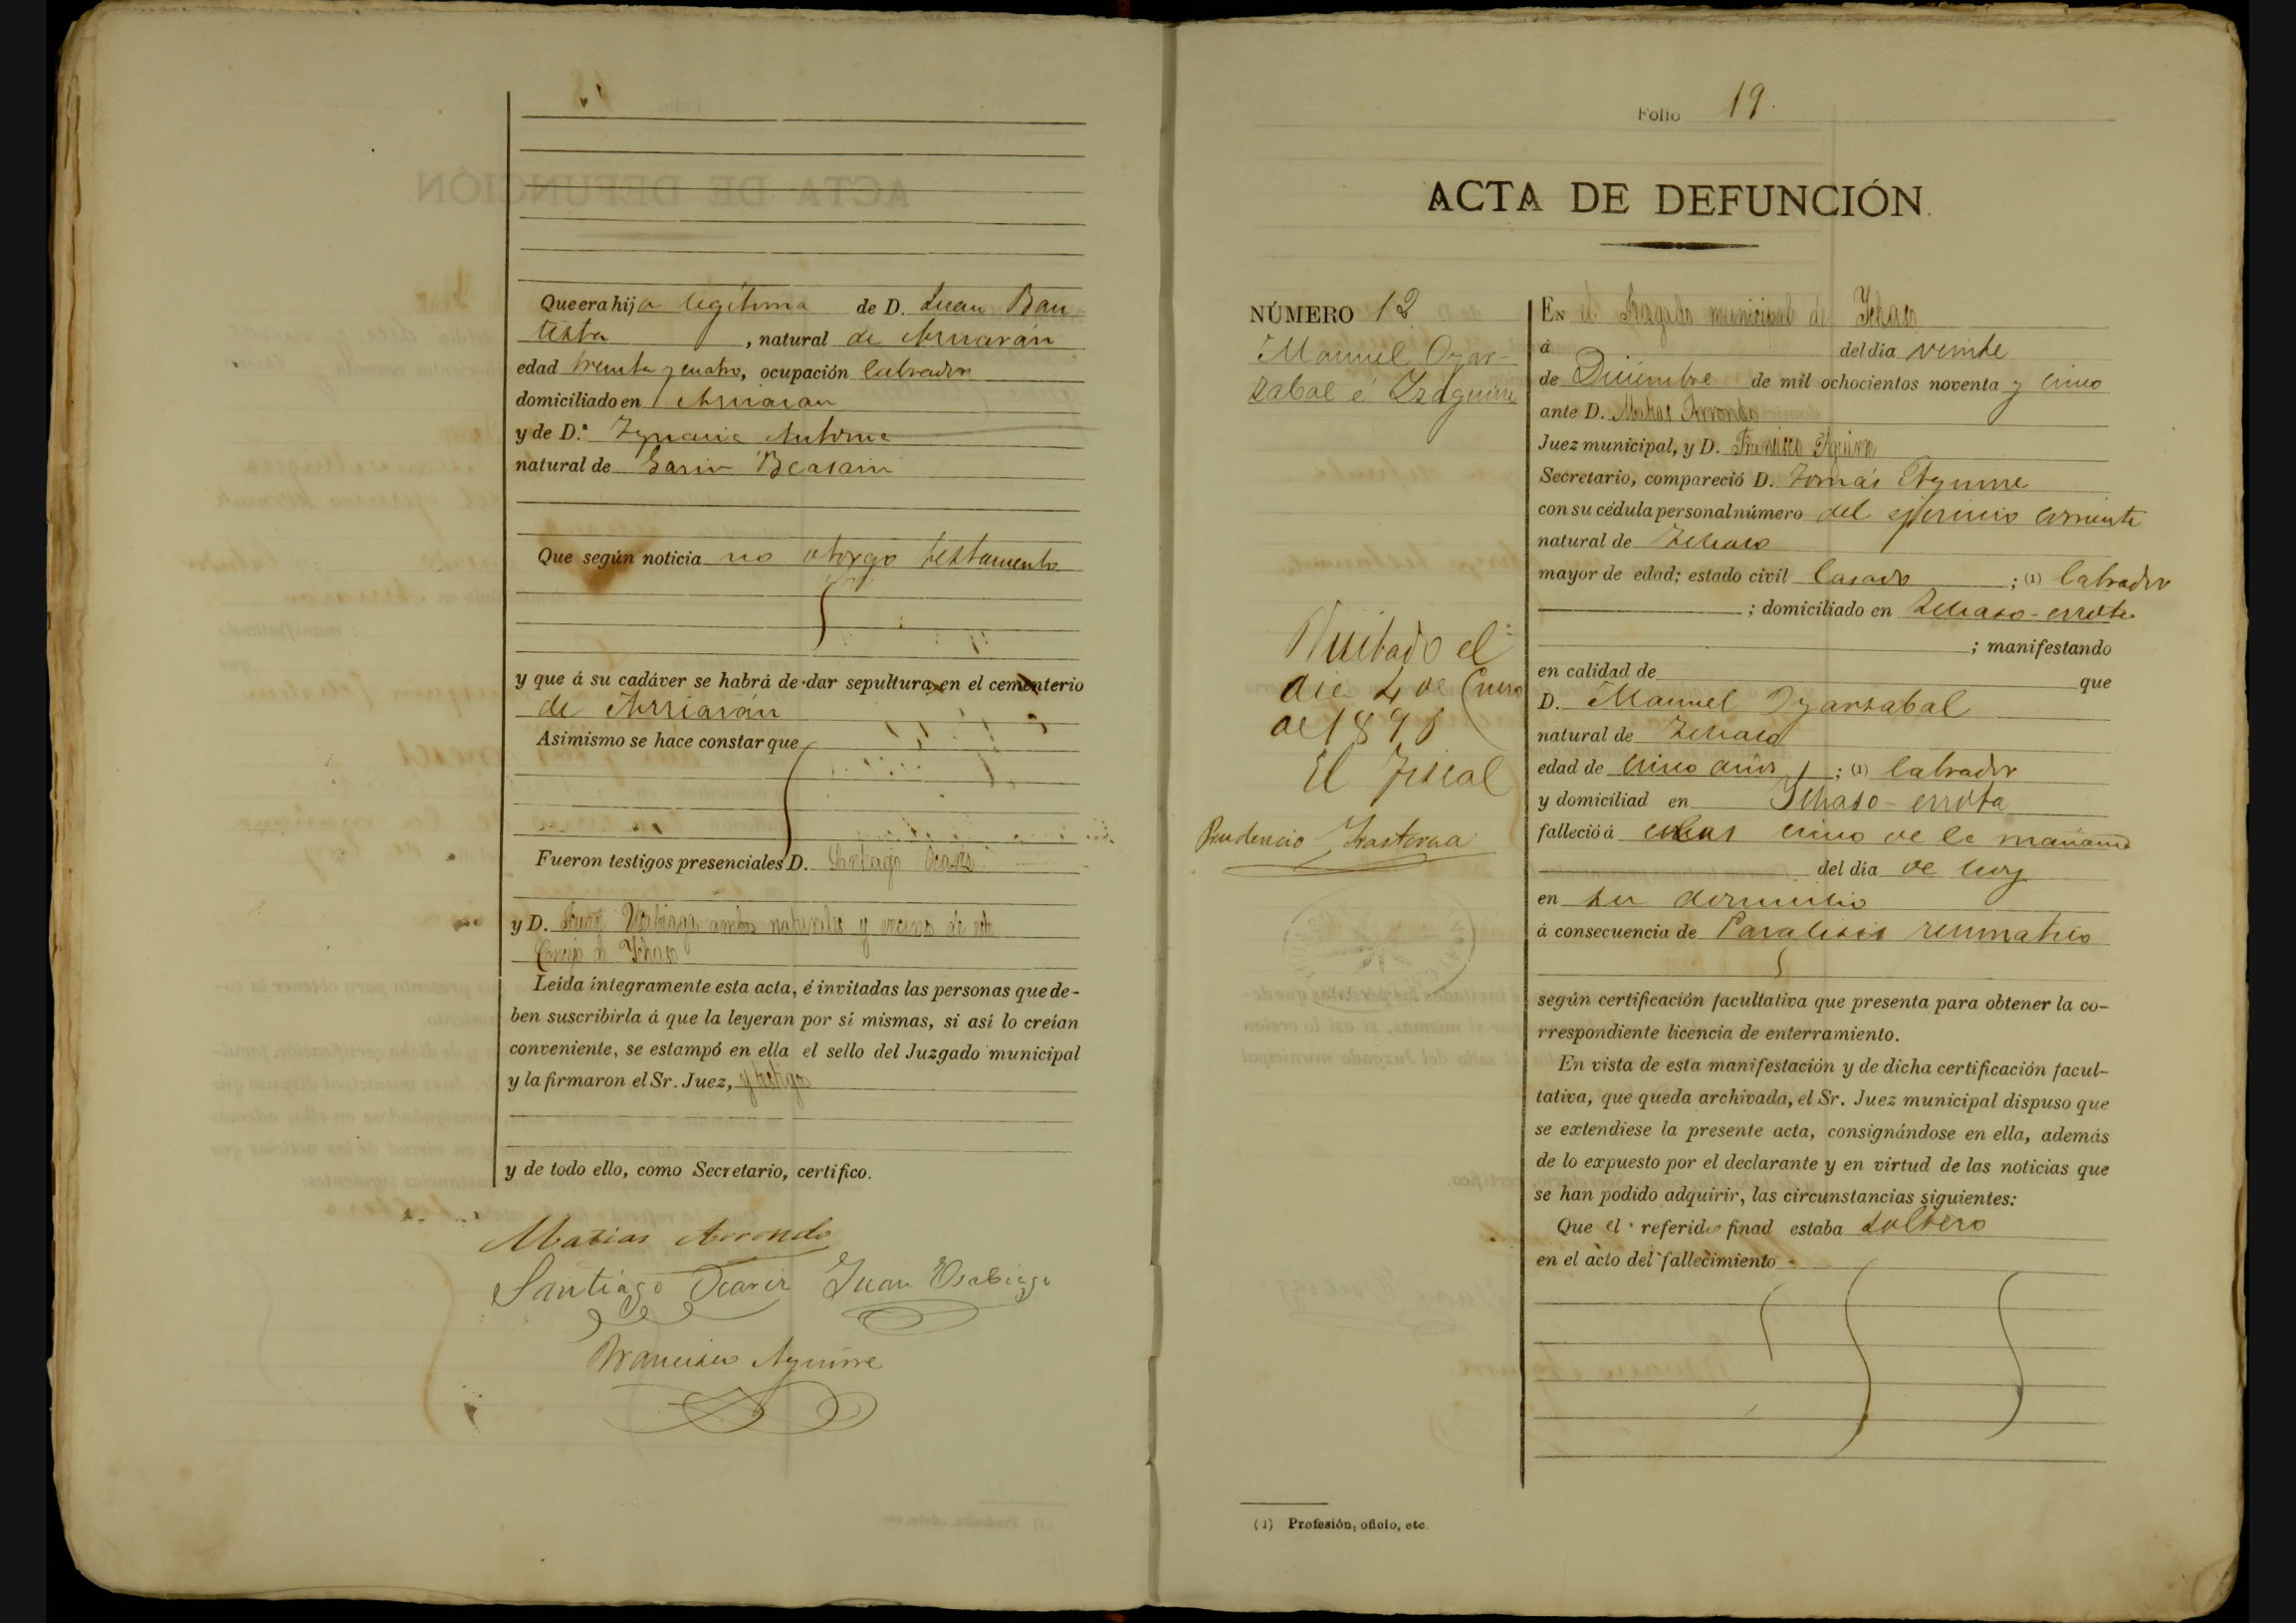 Que era hija legítima de D. Juan Bau
tista, natural de Arriarán
edad treinta y cuatro, ocupación labrador
domiciliado en Arriaran
y de D.ª Ygnacia Antonia
natural de Garin Beasain
Que según noticia no otorgo testamento
y que á su cadáver se habrá de dar sepultura en el cementerio
de Arriaran
Asimismo se hace constar que
Fueron testigos presenciales D. Santiago
y D. Juan Usabiaga ambos naturales y vecinos de este
Concejo de Ychaso
Leída íntegramente esta acta, é invitadas las personas que de-
ben suscribirla á que la leyeran por sí mismas, si así lo creían
conveniente, se estampó en ella el sello del Juzgado municipal
y la firmaron el Sr. Juez, y testigos
y de todo ello, como Secretario, certifico.
Matias Arrondo
Santiago Juan Usabiaga
Francisco Aguirre
Folio 19.
ACTA DE DEFUNCIÓN.
NÚMERO 12
Manuel Oyar-
zabal é Yzaguirre
Visitado el
dia 4 de Enero
de 189
El Fiscal
Prudencio Yrastorza
EN el Juzgado municipal de Ychaso
á del dia veinte
de Diciembre de mil ochocientos noventa y cinco
ante D. Matias Arrondo
Juez municipal, y D. Francisco Aguirre
Secretario, compareció D. Tomás Aguirre
con su cédula personal número del ejercicio corriente
natural de Ychaso
mayor de edad; estado civil Casado; (1) labrador
; domiciliado en Ychaso-errota
; manifestando
en calidad de que
D. Manuel Oyarzabal
natural de Ychaso
edad de cinco años; (1) labrador
y domiciliad en Ychaso-errota
falleció á las cinco de la mañana
del día de hoy
en su domicilio
á consecuencia de Paralisis reumatico
según certificación facultativa que presenta para obtener la co-
rrespondiente licencia de enterramiento.
En vista de esta manifestación y de dicha certificación facul-
tativa, que queda archivada, el Sr. Juez municipal dispuso que
se extendiese la presente acta, consignándose en ella, además
de lo expuesto por el declarante y en virtud de las noticias que
se han podido adquirir, las circunstancias siguientes:
Que el referido finad estaba soltero
en el acto del fallecimiento
(1) Profesión, oficio, etc.